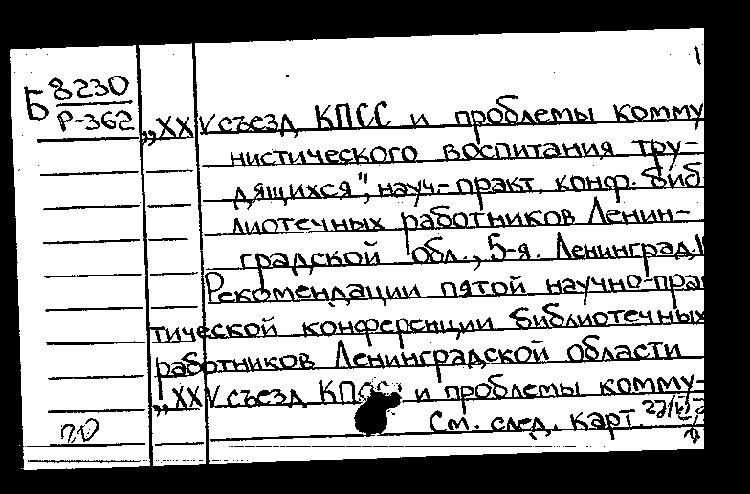 1
Б 8230
Р-362
„XXV съезд КПСС и проблемы комму
нистического воспитания тру-
дящихся", науч-практ. конф. биб
лиотечных работников Ленин-
градской обл., 5-я. Ленинград,
Рекомендации пятой научно-прак
тической конференции библиотечных
работников Ленинградской области
„XXV съезд КПСС и проблемы комму-
См. след. карт.